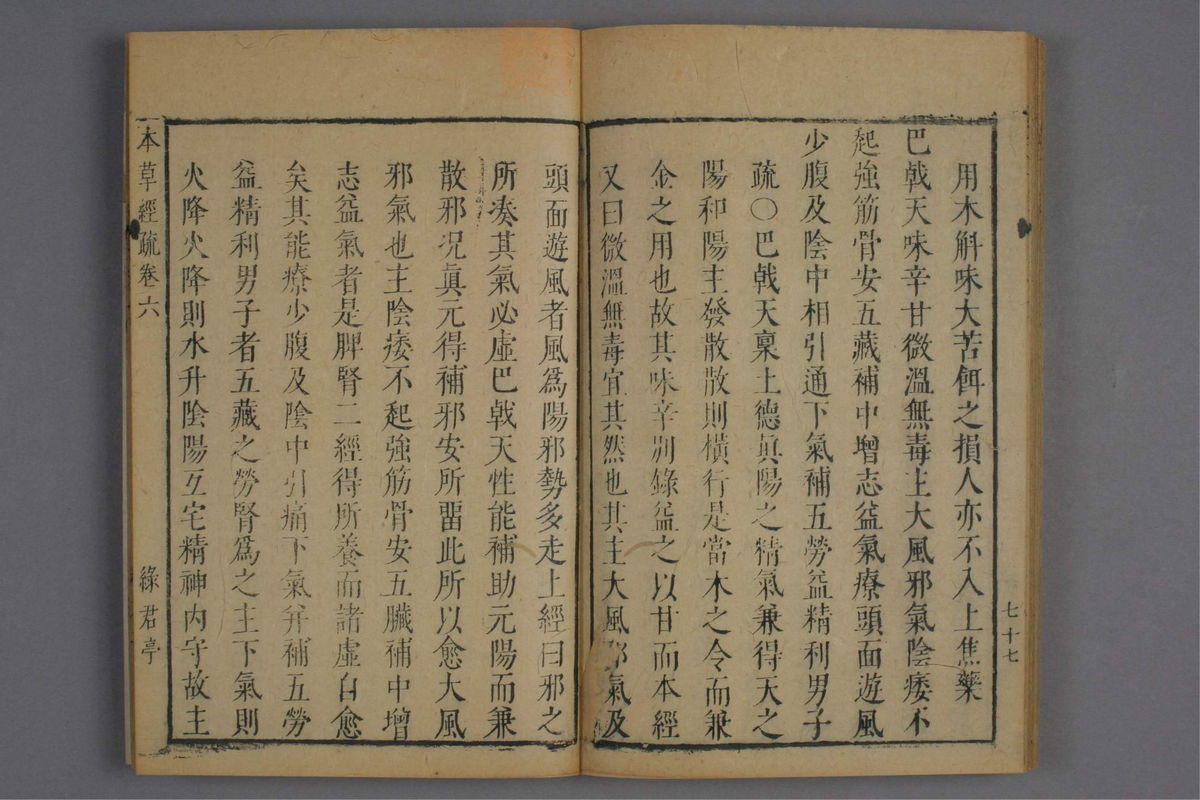 用木斛味大苦餌之損人亦不入上焦藥
巴戟天味辛甘微溫無毒主大風邪氣陰痿不
起強筋骨安五藏補中增志益氣療頭面遊風
少腹及陰中相引通下氣補五勞益精利男子
疏〇巴戟天稟土德眞陽之精氣兼得天之
陽和陽主發散散則橫行是當木之令而兼
金之用也故其味辛別錄益之以甘而本經
又曰微溫無毒宜其然也其主大風邪氣及
七十七
頭面遊風者風爲陽邪勢多走上經曰邪之
所凑其氣必虛巴戟天性能補助元陽而兼
散邪况眞元得補邪安所畱此所以愈大風
邪氣也主陰痿不起強筋骨安五臟補中增
志益氣者是脾腎二經得所養而諸虛自愈
矣其能療少腹及陰中引痛下氣并補五勞
益精利男子者五藏之勞腎爲之主下氣則
火降火降則水升陰陽互宅精神內守故主
本草經疏卷六
綠君亭